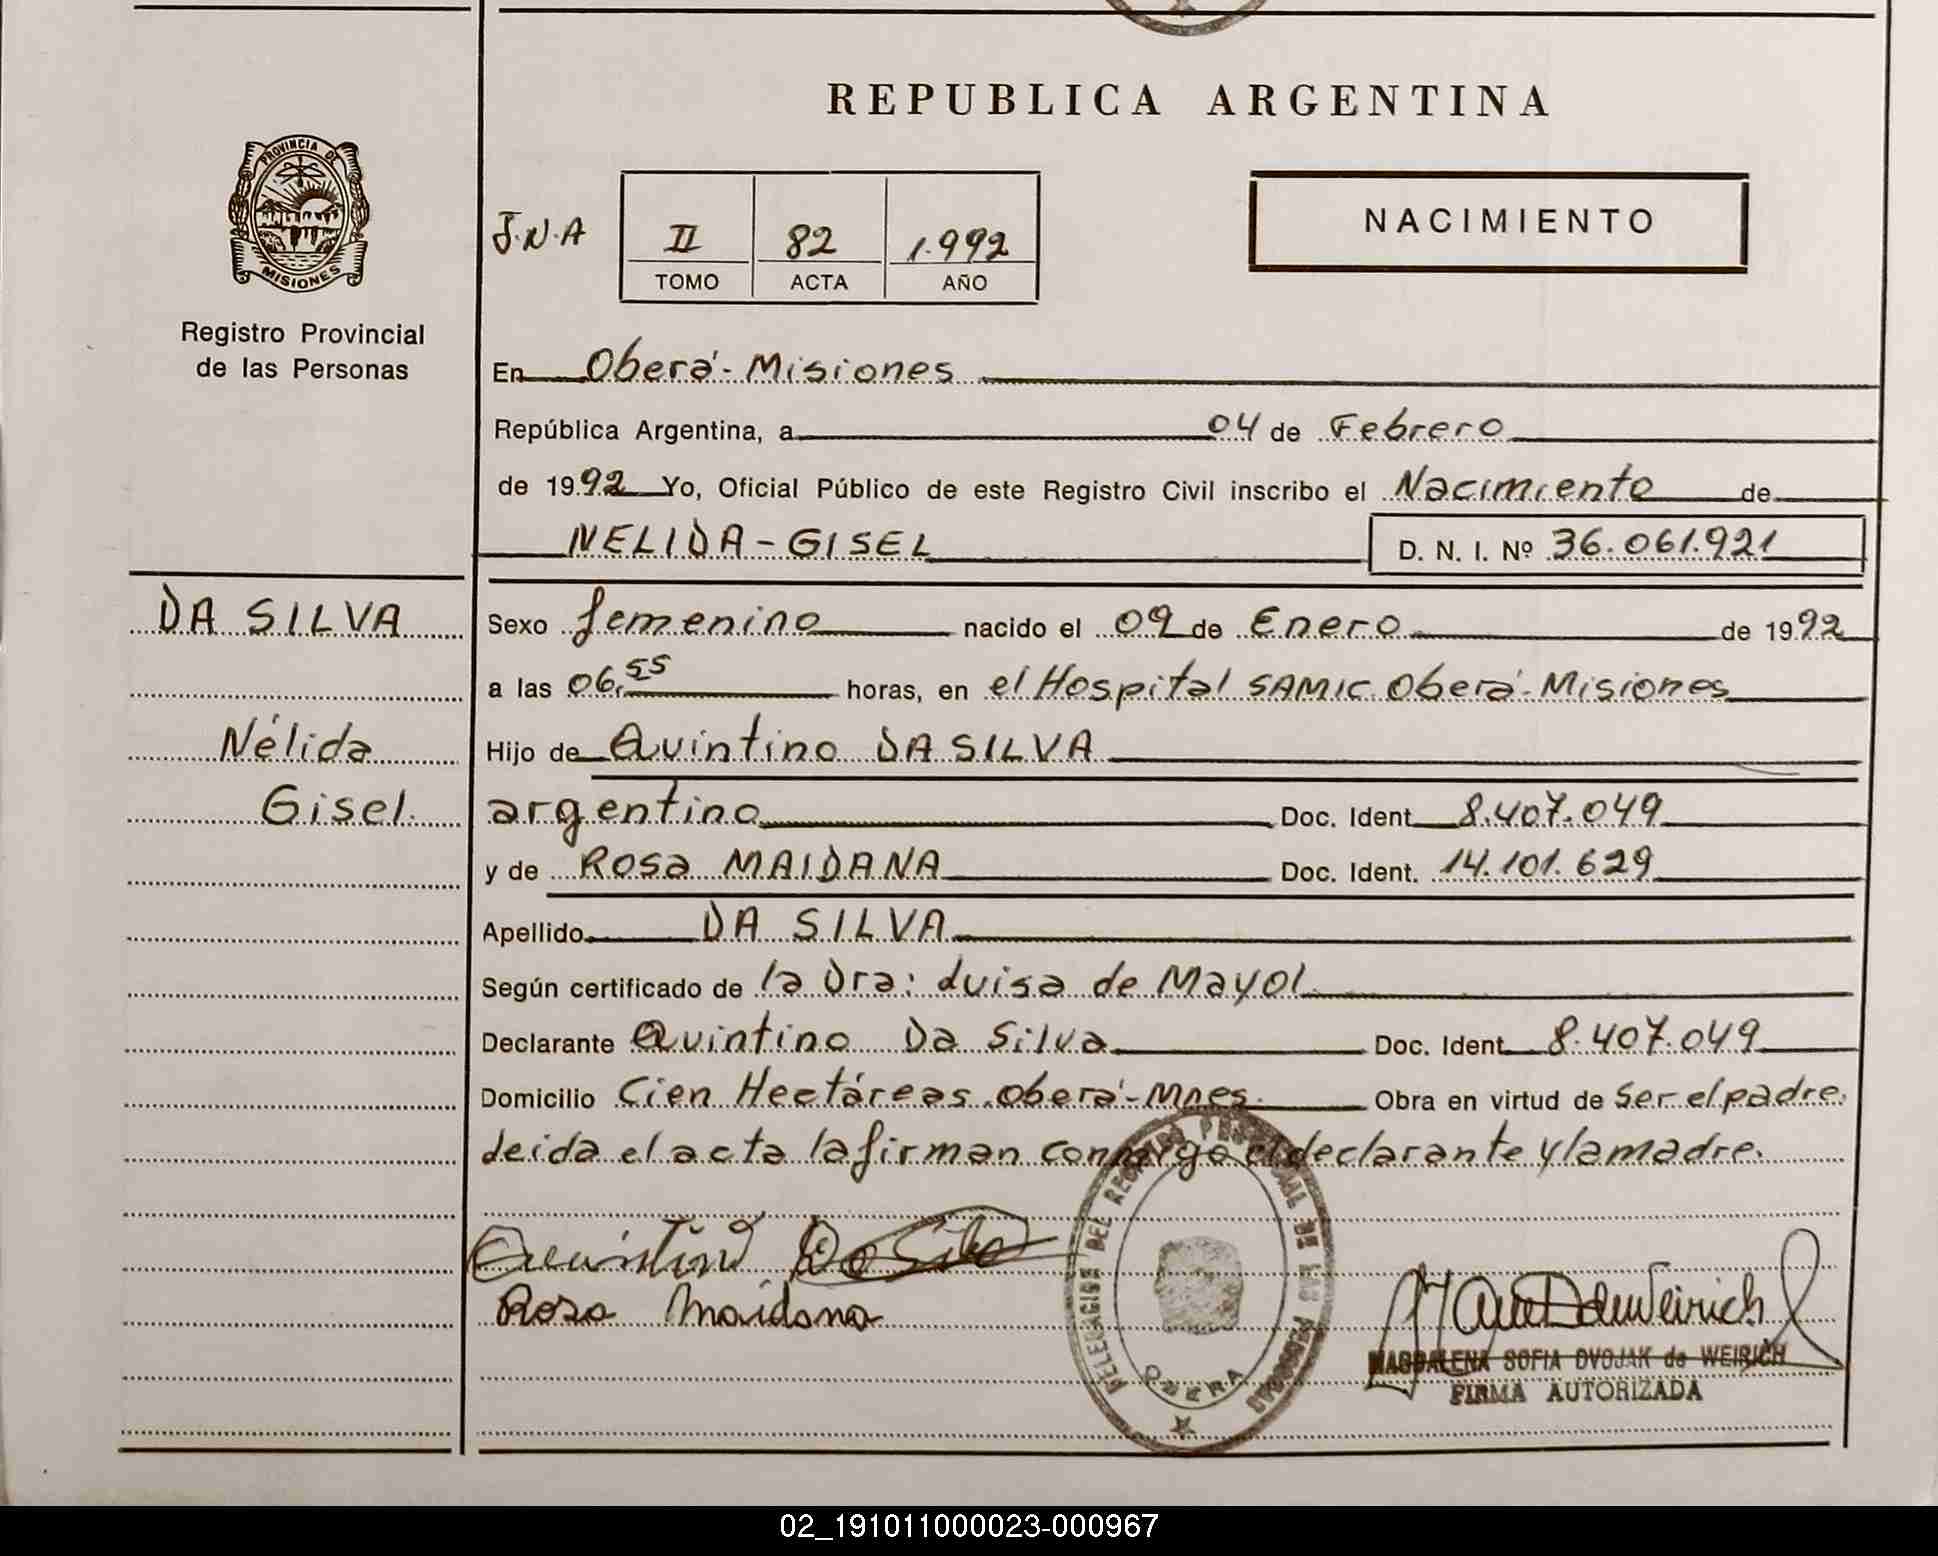 REPUBLICA ARGENTINA
PROVINCIA DE
MISIONES
Registro Provincial
de las Personas
J.N.A
II 82 1.992
TOMO ACTA AÑO
NACIMIENTO
En Oberá-Misiones
República Argentina, a 04 de Febrero
de 1992 Yo, Oficial Público de este Registro Civil inscribo el Nacimiento de
NELIDA-GISEL D. N. I. Nº 36.061.921
DA SILVA
Nélida
Gisel.
Sexo femenino nacido el 09 de Enero de 1992
a las 06,55 horas, en el Hospital SAMIC. Oberá-Misiones
Hijo de Quintino DA SILVA
argentino Doc. Ident. 8.407.049
y de Rosa MAIDANA Doc. Ident. 14.101.629
Apellido DA SILVA
Según certificado de la Dra: Luisa de Mayol
Declarante Quintino Da Silva Doc. Ident. 8.407.049
Domicilio Cien Hectáreas. Oberá-Mnes. Obra en virtud de ser el padre.
Leida el acta la firman conmigo el declarante y la madre.
Quintino Da Silva
Rosa Maidana
DELEGACION DEL REGISTRO PROVINCIAL DE LAS PERSONAS
OBERA
MAGDALENA SOFIA DVOJAK de WEIRICH
FIRMA AUTORIZADA
02_191011000023-000967